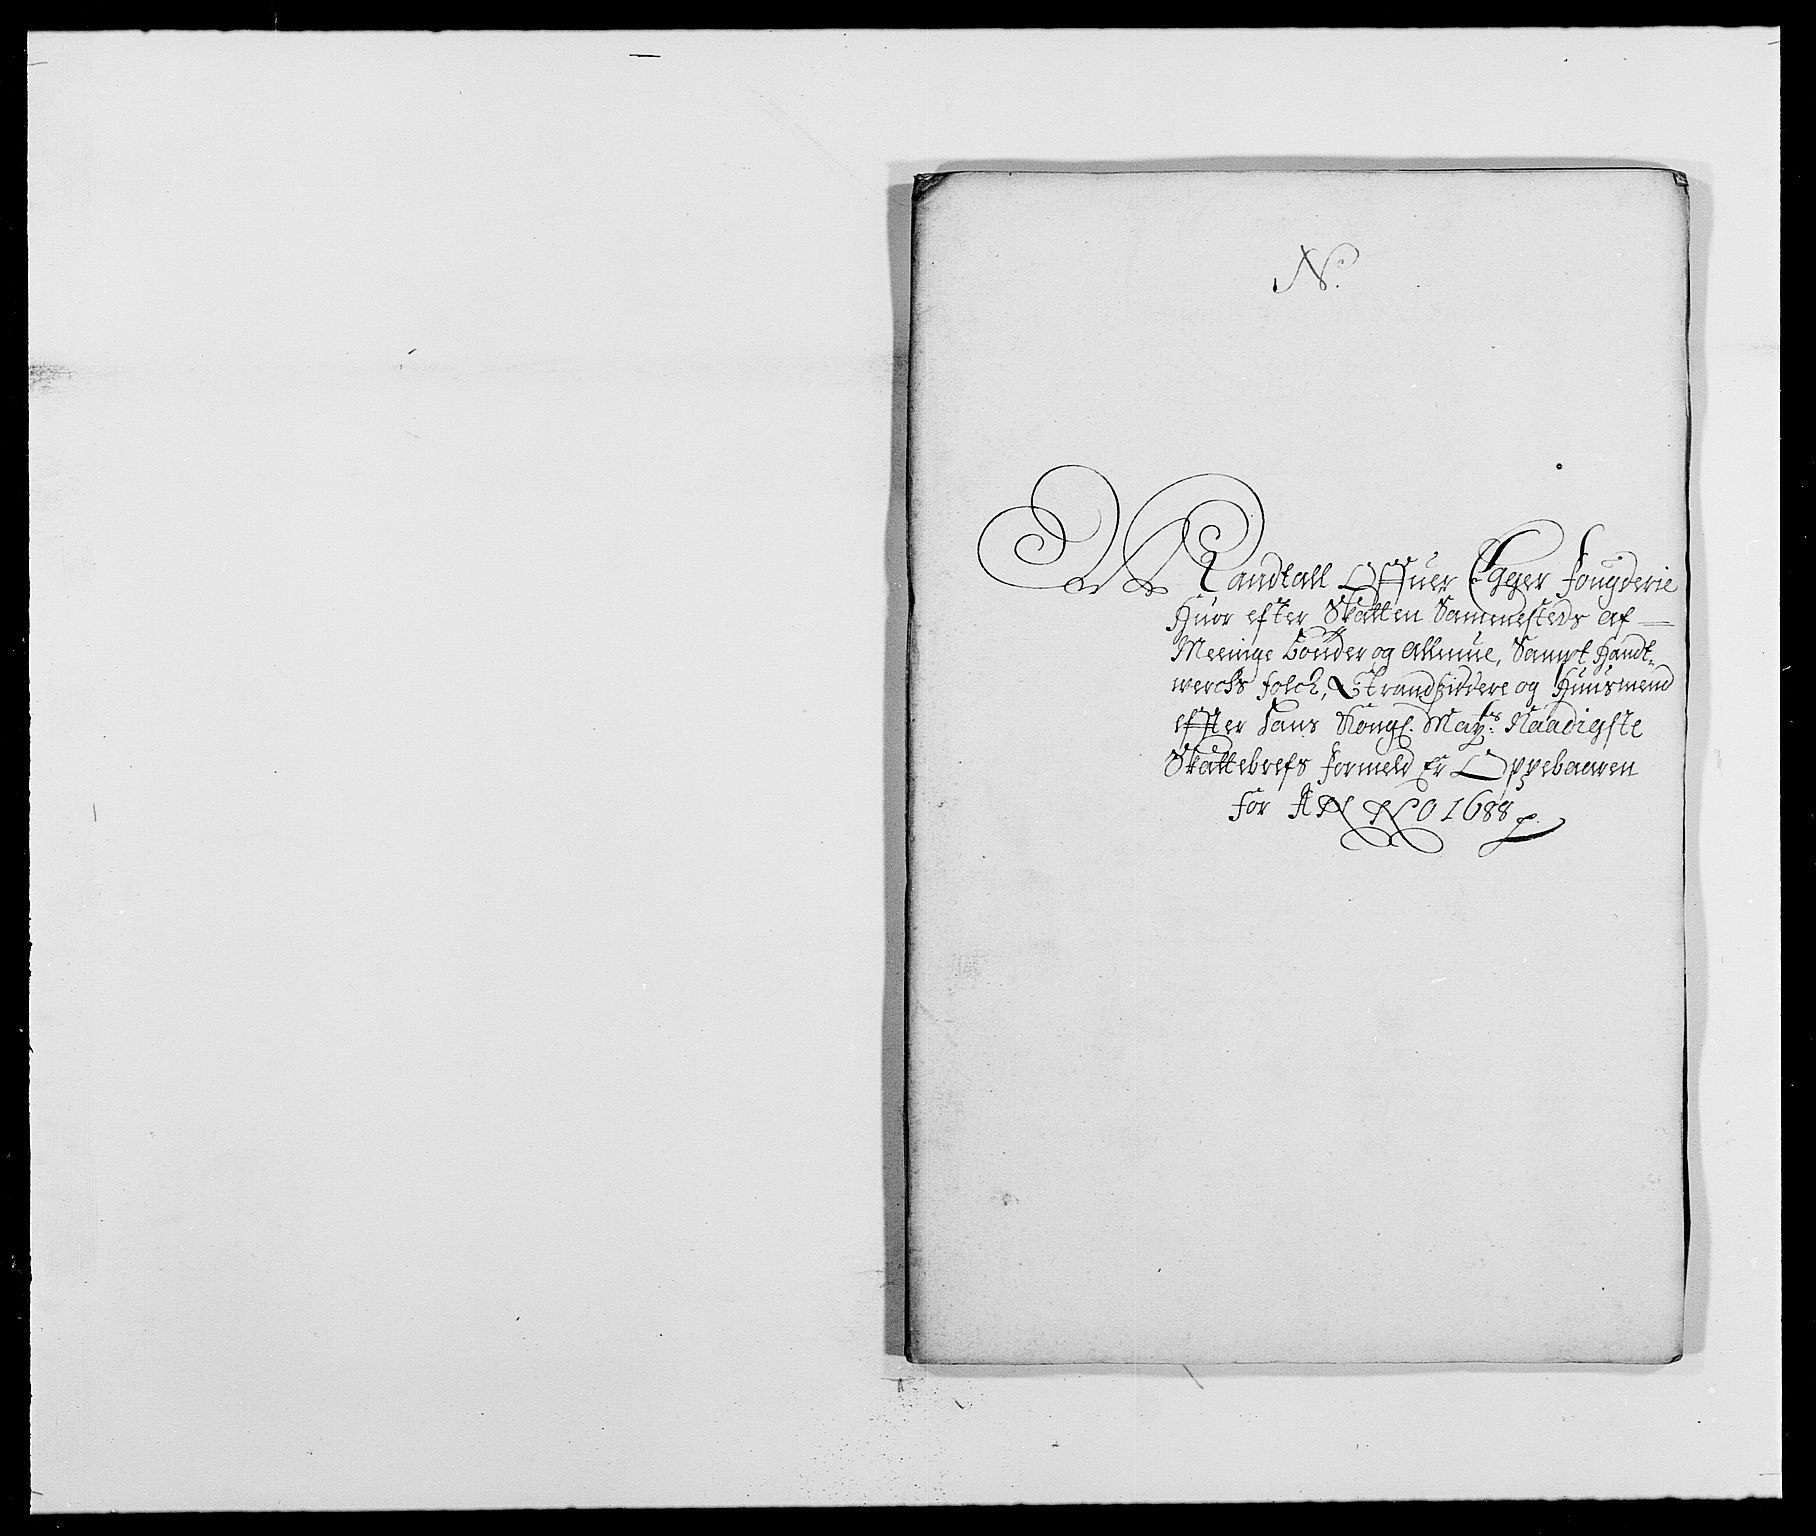 N.
Mandtall Offuer Egger fougderie
Huor efter Skatten Sammesteds af
Meenige Bönder og Allmue, Sampt Handt-
wercks folch, Strandsiddere og Huusmend
effter Hans Kongl. Mayts. Naadigste
Skattebrefs formeld Er Oppebaaren
for ANNO 1688